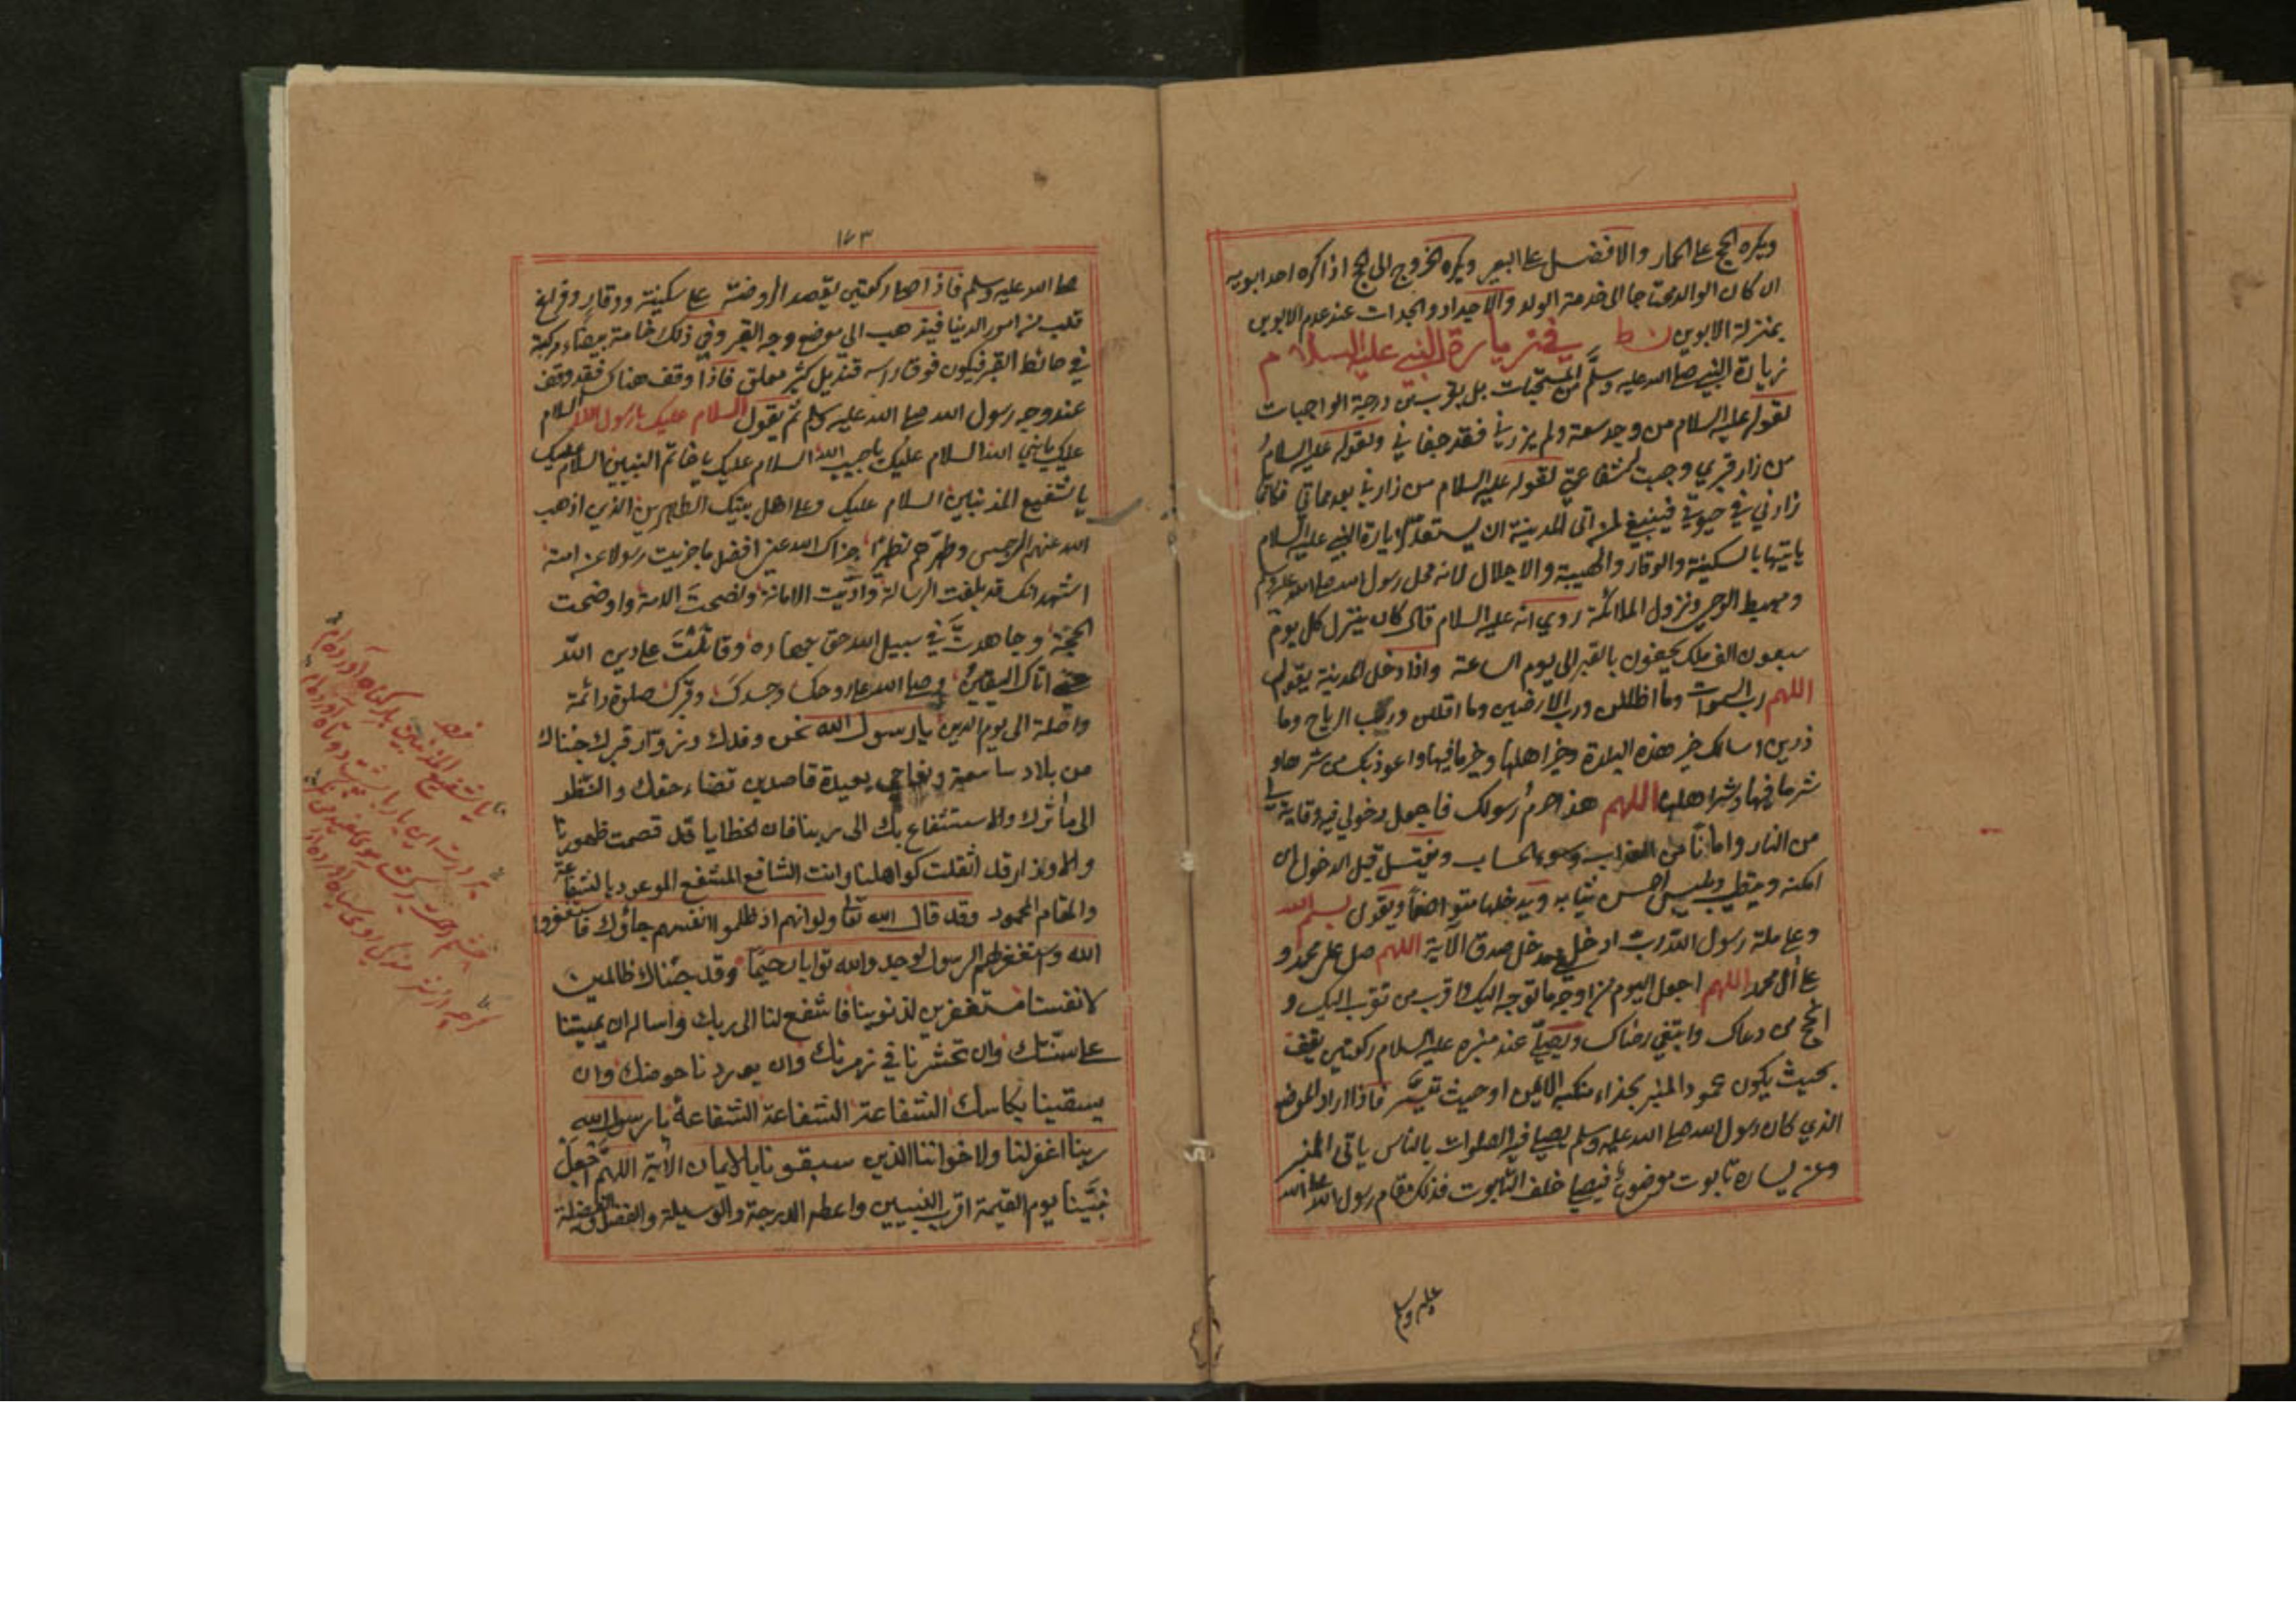 ويكره الحج على الحمار والافضل على البعير ويكره الخروج الى الحج اذا كره احد ابويه
ان كان الوالد محتاجا الى خدمة الولد والاجداد والجدات عند عدم الابوين
بمنزلة الابوين في زيارة النبي عليه السلام
زيارة النبي صلى الله عليه وسلم من المستحبات بل يقرب من درجة الواجبات
لقوله عليه السلام من وجد سعة ولم يزرني فقد جفاني ولقوله عليه السلام
من زار قبري وجبت له شفاعتي لقوله عليه السلام من زارني بعد مماتي فكانما
زارني في حيوتي فينبغي لمن اتى المدينة ان يستعد لزيارة النبي عليه السلام
ياتيها بالسكينة والوقار والهيبة والاجلال لانه محل رسول الله صلى الله عليه وسلم
ومهبط الوحي ونزول الملائكة روي انه عليه السلام قال كان ينزل كل يوم
سبعون الف ملك يحفون بالقبر الى يوم الساعة واذا دخل المدينة يقول
اللهم رب السموات وما اظللن ورب الارضين وما اقللن ورب الرياح وما
ذرين اسالك خير هذه البلدة وخير اهلها وخير ما فيها واعوذ بك من شرها و
شر ما فيها وشر اهلها اللهم هذا حرم رسولك فاجعل دخولي فيه وقاية لي
من النار وامانا من العذاب وسوء الحساب ويغتسل قبل الدخول ان
امكنه ويتطيب ويلبس احسن ثيابه ويدخلها متواضعا ويقول بسم الله
وعلى ملة رسول الله رب ادخلني مدخل صدق الآية اللهم صل على محمد و
على آل محمد اللهم اجعل اليوم من اوجه ما توجه اليك واقرب من تقرب اليك و
انجح من دعاك وابتغى رضاك ويصلي عند منبره عليه السلام ركعتين يقف
بحيث يكون عمود المنبر بحذاء منكبه الايمن او حيث تيسر فاذا اراد الموضع
الذي كان رسول الله صلى الله عليه وسلم يصلي فيه الصلوات بالناس ياتي المنبر
وعن يساره تابوت موضوع فيصلي خلف التابوت فذلك مقام رسول الله صلى الله
عليه وسلم
١٧٣
صلى الله عليه وسلم فاذا صلى ركعتين يقصد الروضة على سكينة ووقار وفراغ
قلب من امور الدينا فيذهب الى موضع وجه القبر وفي ذلك خامة بيضاء مركبة
في حائط القبر فيكون فوق راسه قنديل كبير معلق فاذا وقف هناك فقد وقف
عند وجه رسول الله صلى الله عليه وسلم ثم يقول السلام عليك يا رسول الله السلام
عليك يا نبي الله السلام عليك يا حبيب الله السلام عليك يا خاتم النبيين السلام عليك
يا شفيع المذنبين السلام عليك وعلى اهل بيتك الطاهرين الذي اذهب
الله عنهم الرجس وطهرهم تطهيرا جزاك الله عنا افضل ما جزيت رسولا عن امته
اشهد انك قد بلغت الرسالة واديت الامانة ونصحت الامة واوضحت
الحجة وجاهدت في سبيل الله حق جهاده وقاتلت على دين الله
حتى اتاك اليقين وصلى الله على روحك وجسدك وقبرك صلوة دائمة
واصلة الى يوم الدين يا رسول الله نحن وفدك وزوار قبرك جئناك
من بلاد شاسعة ونواحي بعيدة قاصدين قضاء حقك والنظر
الى مآثرك والاستشفاع بك الى ربنا فان الخطايا قد قصمت ظهورنا
والاوزار قد اثقلت كواهلنا وانت الشافع المشفع الموعود بالشفاعة
والمقام المحمود وقد قال الله تعا ولو انهم اذ ظلموا انفسهم جاؤك فاستغفروا
الله واستغفر لهم الرسول لوجدوالله توابا رحيما وقد جئناك ظالمين
لانفسنا مستغفرين لذنوبنا فاشفع لنا الى ربك واساله ان يميتنا
على سنتك وان تحشرنا في زمرتك وان يوردنا حوضك وان
يسقينا بكاسك الشفاعة الشفاعة الشفاعة يا رسول الله
ربنا اغفر لنا ولاخواننا الذين سبقونا بالايمان الآية اللهم اجعل
نبينا يوم القيمة اقرب النبيين واعطه الدرجة والوسيلة والفضل والفضيلة
يا شفيع المذنبين بار گناه آورده ام